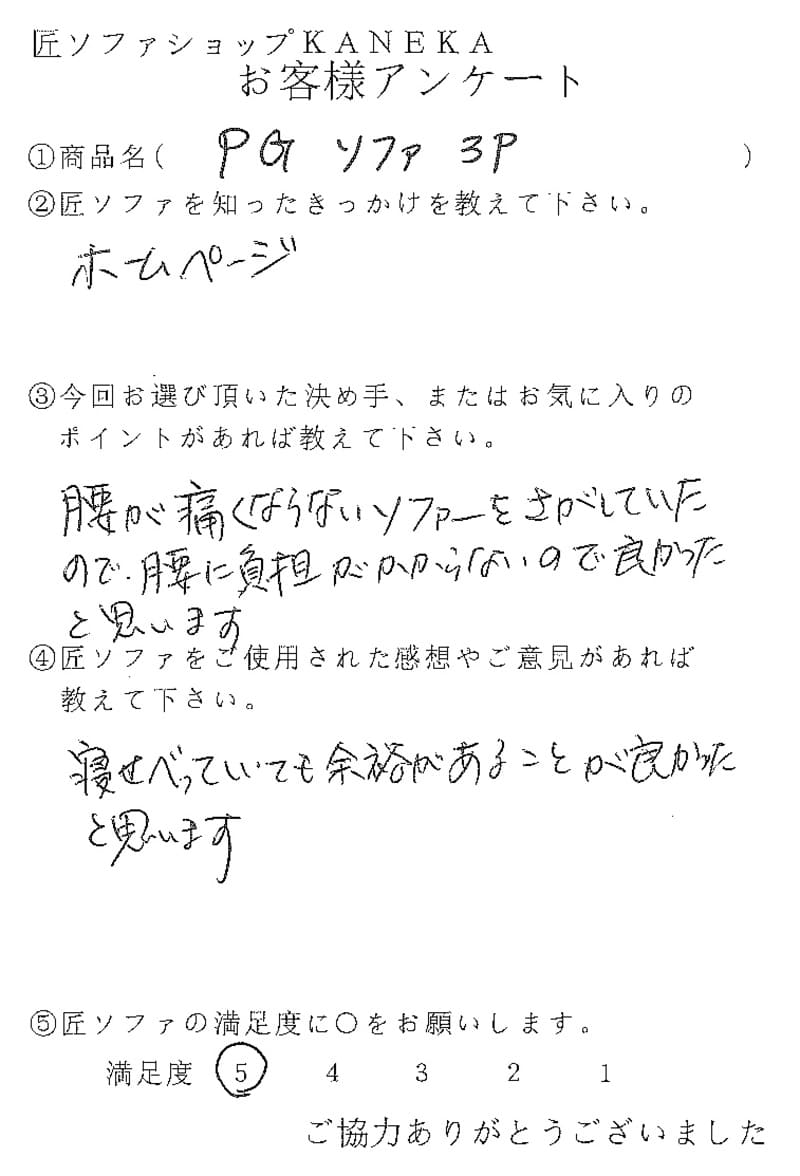 匠ソファショップKANEKA
お客様アンケート
①商品名( PG ソファ 3P )
②匠ソファを知ったきっかけを教えて下さい。
ホームページ
③今回お選び頂いた決め手、またはお気に入りの
ポイントがあれば教えて下さい。
腰が痛くならないソファーをさがしていた
ので、腰に負担がかからないので良かった
と思います
④匠ソファをご使用された感想やご意見があれば
教えて下さい。
寝せべっていても余裕があることが良かった
と思います
⑤匠ソファの満足度に〇をお願いします。
満足度 5 4 3 2 1
ご協力ありがとうございました